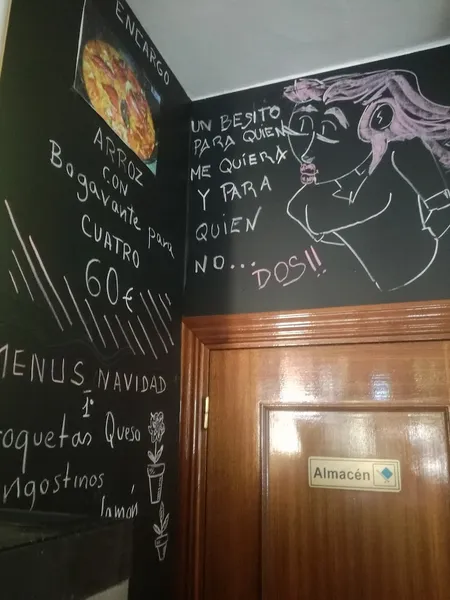 ENCARGO
ARROZ
CON
Bogavante para
CUATRO
60€
MENUS NAVIDAD
1º
Queso
Jamón
UN BESITO
PARA QUIEN
ME QUIERA
Y PARA
QUIEN
NO... DOS!!
Almacén